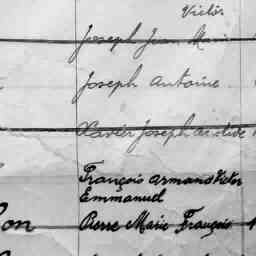 Victor
Joseph Jean Marie
Joseph Antoine
Xavier Joseph Aristide
François Armand Victor
Emmanuel
on Pierre Marie François